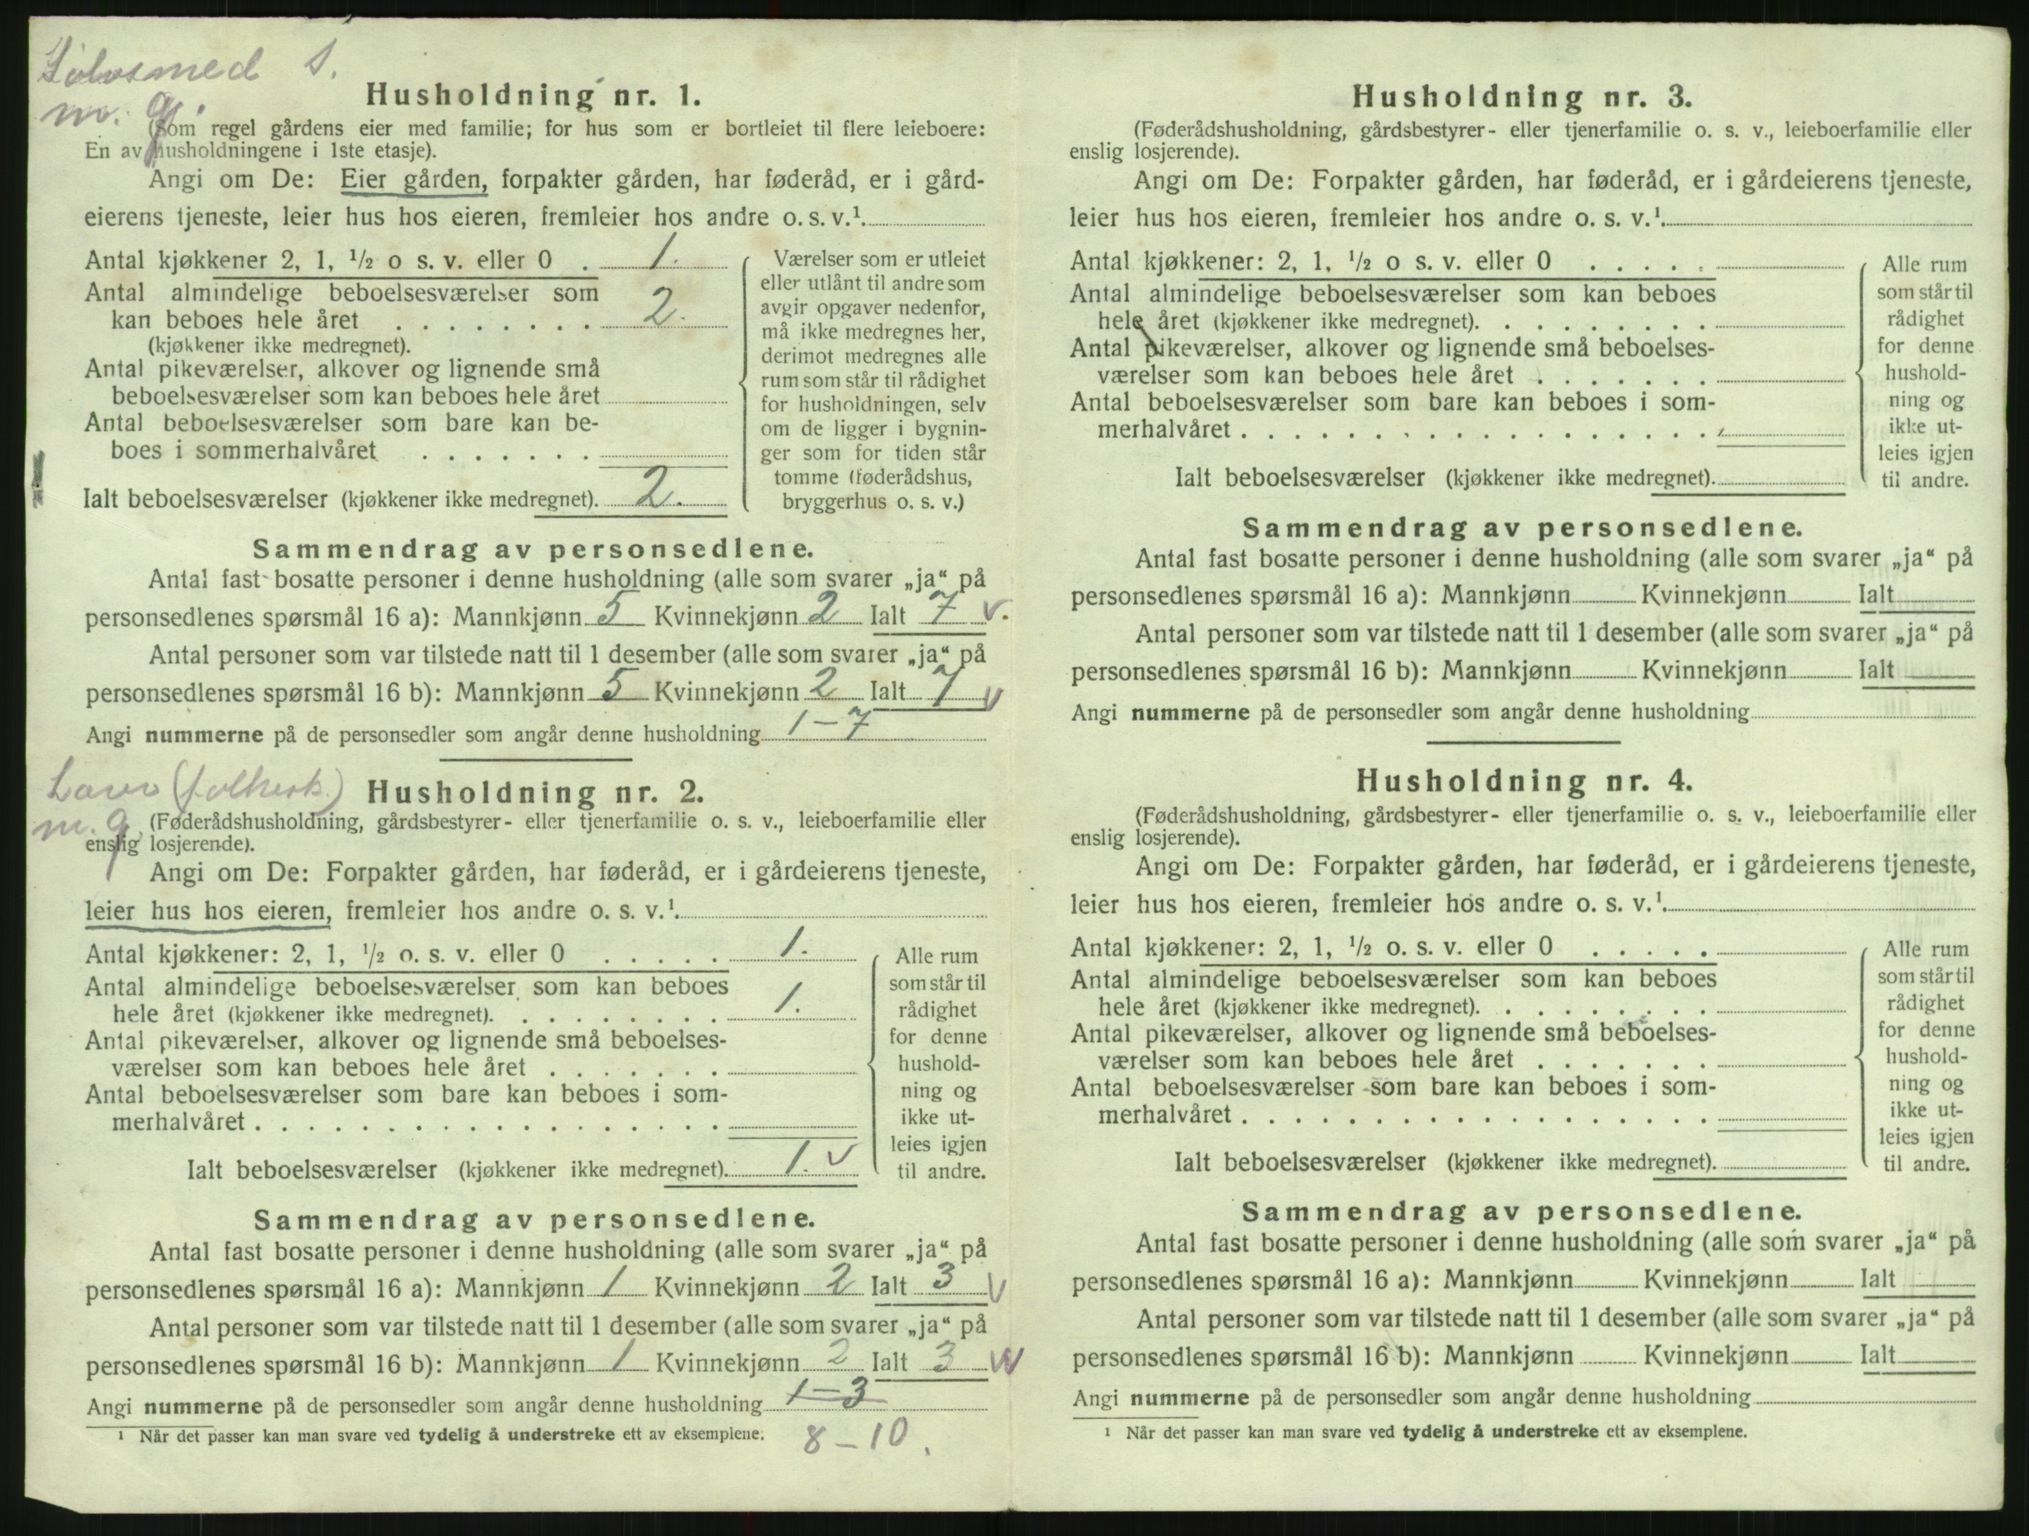 Sølvsmed S.
m. g.
Husholdning nr. 1.
(Som regel gårdens eier med familie; for hus som er bortleiet til flere leieboere:
En av husholdningene i 1ste etasje).
Angi om De: Eier gården, forpakter gården, har føderåd, er i gård-
eierens tjeneste, leier hus hos eieren, fremleier hos andre o. s. v.¹
Antal kjøkkener 2, 1, ½ o s. v. eller 0 . 1.
Antal almindelige beboelsesværelser som
kan beboes hele året . . . . . . . . 2.
(kjøkkener ikke medregnet).
Antal pikeværelser, alkover og lignende små
beboelsesværelser som kan beboes hele året
Antal beboelsesværelser som bare kan be-
boes i sommerhalvåret . . . . . . .
Ialt beboelsesværelser (kjøkkener ikke medregnet). 2.
Værelser som er utleiet
eller utlånt til andre som
avgir opgaver nedenfor,
må ikke medregnes her,
derimot medregnes alle
rum som står til rådighet
for husholdningen, selv
om de ligger i bygnin-
ger som for tiden står
tomme (føderådshus,
bryggerhus o. s. v.)
Sammendrag av personsedlene.
Antal fast bosatte personer i denne husholdning (alle som svarer „ja“ på
personsedlenes spørsmål 16 a): Mannkjønn 5 Kvinnekjønn 2 Ialt 7 v.
Antal personer som var tilstede natt til 1 desember (alle som svarer „ja“ på
personsedlenes spørsmål 16 b): Mannkjønn 5 Kvinnekjønn 2 Ialt 7 v
Angi nummerne på de personsedler som angår denne husholdning 1–7
(folkesk.)
m. g.
Husholdning nr. 2.
(Føderådshusholdning, gårdsbestyrer- eller tjenerfamilie o. s. v., leieboerfamilie eller
enslig losjerende).
Angi om De: Forpakter gården, har føderåd, er i gårdeierens tjeneste,
leier hus hos eieren, fremleier hos andre o. s. v.¹
Antal kjøkkener: 2, 1, ½ o. s. v. eller 0 . . . . . 1.
Antal almindelige beboelsesværelser som kan beboes
hele året (kjøkkener ikke medregnet). . . . . . . . . 1.
Antal pikeværelser, alkover og lignende små beboelses-
værelser som kan beboes hele året . . . . . . .
Antal beboelsesværelser som bare kan beboes i som-
merhalvåret . . . . . . . . . . . . . . . . . .
Ialt beboelsesværelser (kjøkkener ikke medregnet). 1. v
Alle rum
som står til
rådighet
for denne
hushold-
ning og
ikke ut-
leies igjen
til andre.
Sammendrag av personsedlene.
Antal fast bosatte personer i denne husholdning (alle som svarer „ja“ på
personsedlenes spørsmål 16 a): Mannkjønn 1 Kvinnekjønn 2 Ialt 3 v
Antal personer som var tilstede natt til 1 desember (alle som svarer „ja“ på
personsedlenes spørsmål 16 b): Mannkjønn 1 Kvinnekjønn 2 Ialt 3 v
Angi nummerne på de personsedler som angår denne husholdning 1–3
¹ Når det passer kan man svare ved tydelig å understreke ett av eksemplene. 8–10.
Husholdning nr. 3.
(Føderådshusholdning, gårdsbestyrer- eller tjenerfamilie o. s. v., leieboerfamilie eller
enslig losjerende).
Angi om De: Forpakter gården, har føderåd, er i gårdeierens tjeneste,
leier hus hos eieren, fremleier hos andre o. s. v.¹
Antal kjøkkener: 2, 1, ½ o s. v. eller 0 . . . . .
Antal almindelige beboelsesværelser som kan beboes
hele året (kjøkkener ikke medregnet). . . . . . . . .
Antal pikeværelser, alkover og lignende små beboelses-
værelser som kan beboes hele året . . . . . . .
Antal beboelsesværelser som bare kan beboes i som-
merhalvåret . . . . . . . . . . . . . . . . . .
Ialt beboelsesværelser (kjøkkener ikke medregnet).
Alle rum
som står til
rådighet
for denne
hushold-
ning og
ikke ut-
leies igjen
til andre.
Sammendrag av personsedlene.
Antal fast bosatte personer i denne husholdning (alle som svarer „ja“ på
personsedlenes spørsmål 16 a): Mannkjønn Kvinnekjønn Ialt
Antal personer som var tilstede natt til 1 desember (alle som svarer „ja“ på
personsedlenes spørsmål 16 b): Mannkjønn Kvinnekjønn Ialt
Angi nummerne på de personsedler som angår denne husholdning
Husholdning nr. 4.
(Føderådshusholdning, gårdsbestyrer- eller tjenerfamilie o. s. v., leieboerfamilie eller
enslig losjerende).
Angi om De: Forpakter gården, har føderåd, er i gårdeierens tjeneste,
leier hus hos eieren, fremleier hos andre o. s. v.¹
Antal kjøkkener: 2, 1, ½ o. s. v. eller 0 . . . . .
Antal almindelige beboelsesværelser som kan beboes
hele året (kjøkkener ikke medregnet). . . . . . . . .
Antal pikeværelser, alkover og lignende små beboelses-
værelser som kan beboes hele året . . . . . . .
Antal beboelsesværelser som bare kan beboes i som-
merhalvåret . . . . . . . . . . . . . . . . . .
Ialt beboelsesværelser (kjøkkener ikke medregnet).
Alle rum
som står til
rådighet
for denne
hushold-
ning og
ikke ut-
leies igjen
til andre.
Sammendrag av personsedlene.
Antal fast bosatte personer i denne husholdning (alle som svarer „ja“ på
personsedlenes spørsmål 16 a): Mannkjønn Kvinnekjønn Ialt
Antal personer som var tilstede natt til 1 desember (alle som svarer „ja“ på
personsedlenes spørsmål 16 b): Mannkjønn Kvinnekjønn Ialt
Angi nummerne på de personsedler som angår denne husholdning
¹ Når det passer kan man svare ved tydelig å understreke ett av eksemplene.